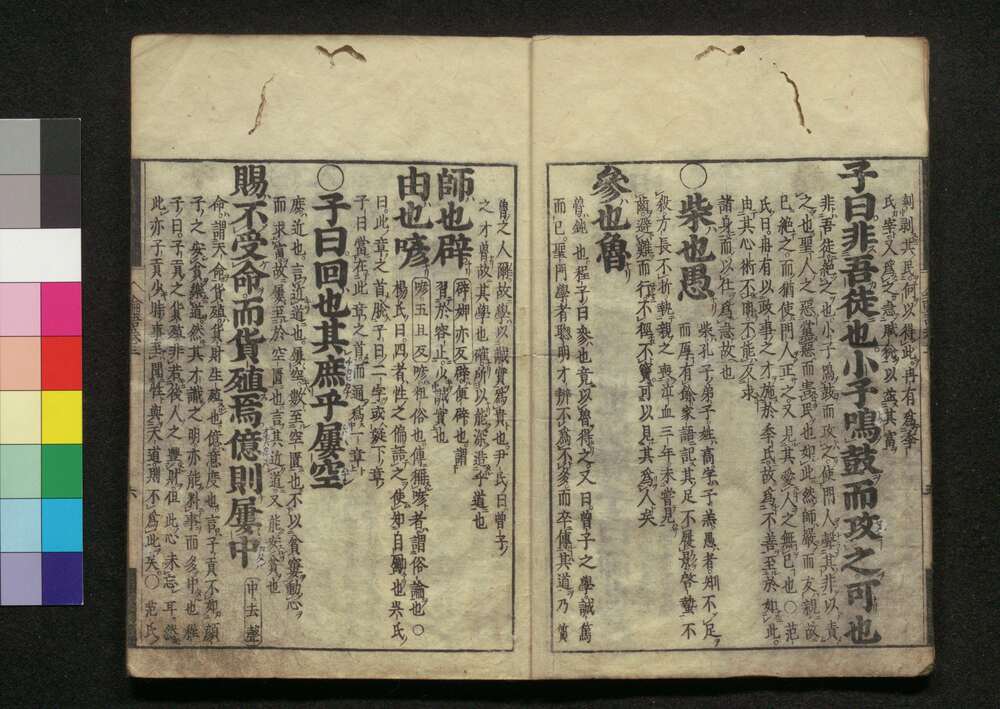 剥其民何以得此冉有爲季
氏宰又爲之急賦税以益其富
子曰非吾徒也小子鳴鼓而攻之可也
非吾徒絶之也小子鳴鼓而攻之使門人聲其罪以責
之也聖人之惡黨惡而害民也如此然師嚴而友親故
已絶之而猶使門人正之又見其愛人之無已也〇范
氏曰冉有以政事之才施於季氏故爲不善至於如此
由其心術不明不能反求
諸身而以仕爲急故也
〇柴也愚
柴孔子弟子姓高字子羔愚者知不足
而厚有餘家語記其足不履影啓蟄不
殺方長不折執親之喪泣血三年未嘗見
齒避難而行不徑不竇可以見其爲人矣
參也魯
魯鈍也程子曰參也竟以魯得之又曰曾子之學誠篤
而已聖門學者聰明才辨不爲不多而卒傳其道乃質
魯之人爾故學以誠實爲貴也尹氏曰曾子
之才魯故其學也確所以能深造乎道也
師也辟
辟婢亦反辟便辟也謂
習於容止少誠實也
由也喭
喭五旦反喭粗俗也傳稱喭者謂俗論也〇
楊氏曰四者性之偏語之使知自勵也吳氏
曰此章之首脱子曰二字或疑下章
子曰當在此章之首而通爲一章
〇子曰回也其庶乎屢空
庶近也言近道也屢空數至空匱也不以貧窶動心
而求富故屢至於空匱也言其近道又能安貧也
賜不受命而貨殖焉億則屢中
中去聲
命謂天命貨殖貨財生殖也億意度也言子貢不如顔
子之安貧樂道然其才識之明亦能料事而多中也程
子曰子貢之貨殖非若後人之豐財但此心未忘耳然
此亦子貢少時事至聞性與天道則不爲此矣〇范氏